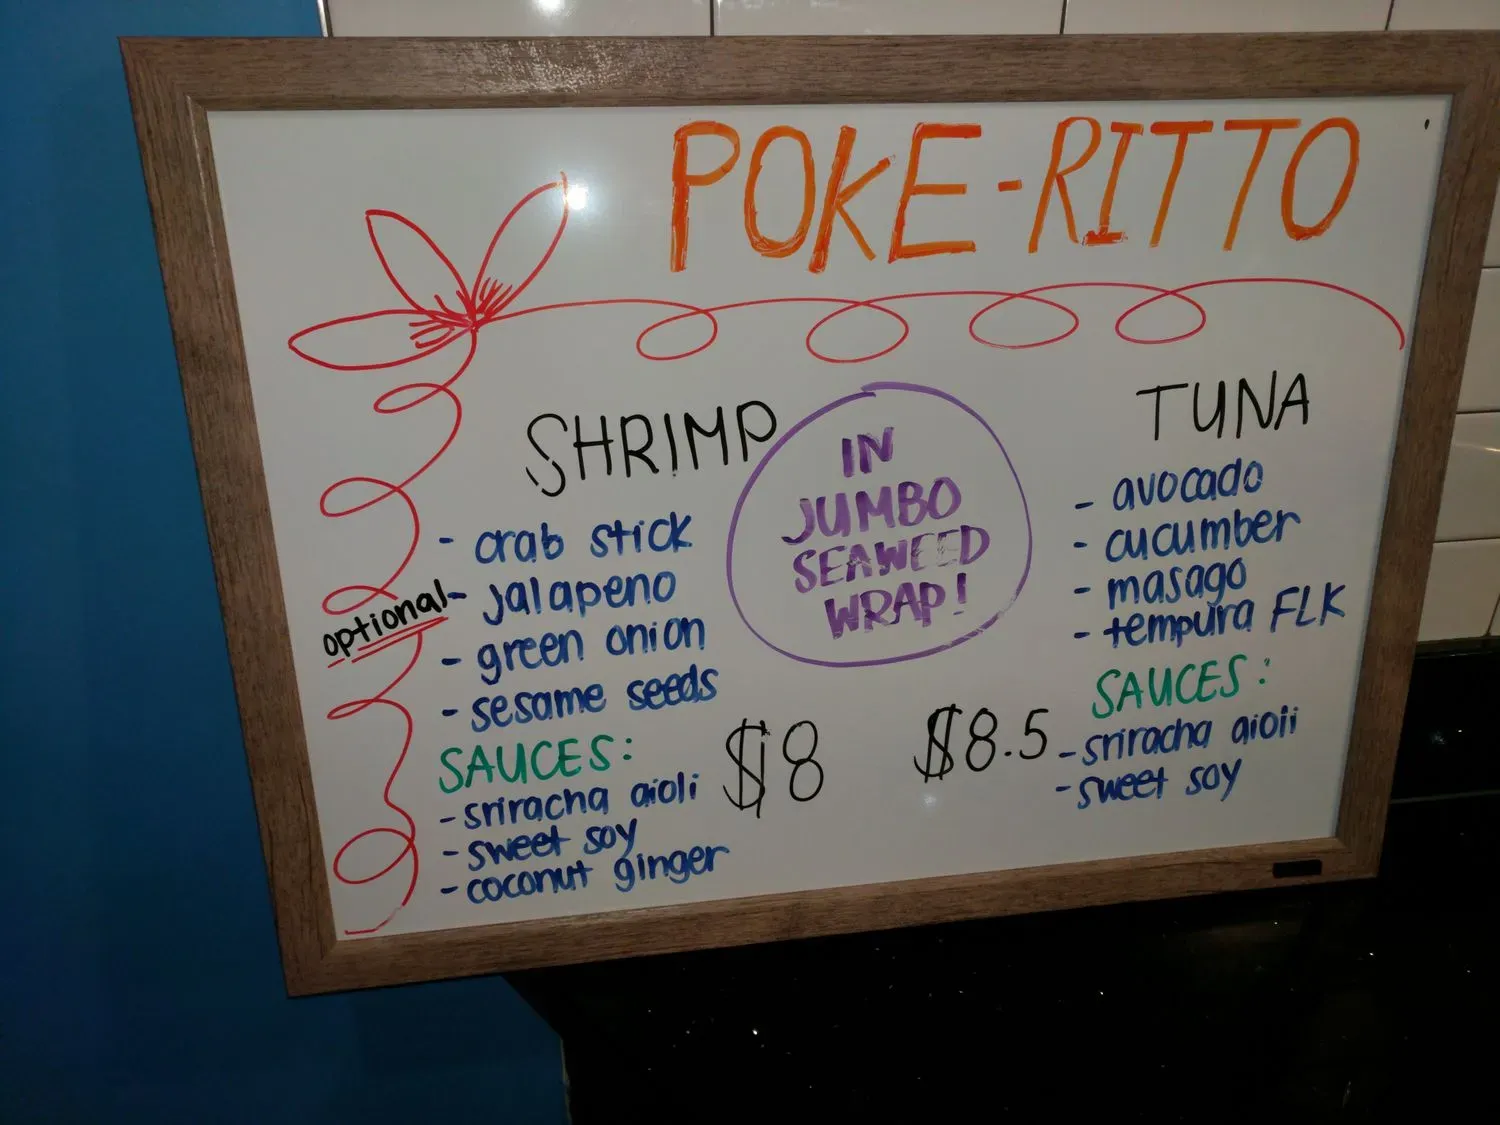 POKE-RITTO
SHRIMP
- crab stick
optional - jalapeno
- green onion
- sesame seeds
SAUCES:
- sriracha aioli
- sweet soy
- coconut ginger
$8
IN
JUMBO
SEAWEED
WRAP!
TUNA
- avocado
- cucumber
- masago
- tempura FLK
SAUCES:
- sriracha aioli
- sweet soy
$8.5